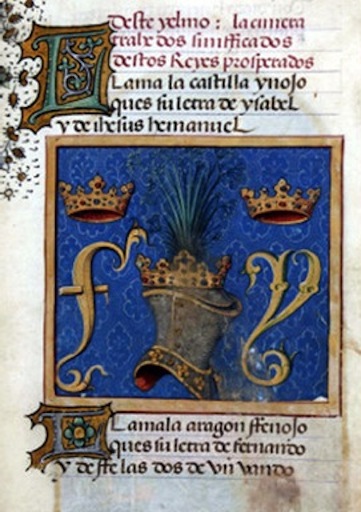 Deste yelmo : la cimera
trahe dos sinifficados
destos Reyes prosperados
Llama la castilla ynojo
ques su letra de ysabel
y de ihesus hemanuel
f y
Llamala aragon ffenojo
ques su letra de fernando
y deste las dos de vn vando